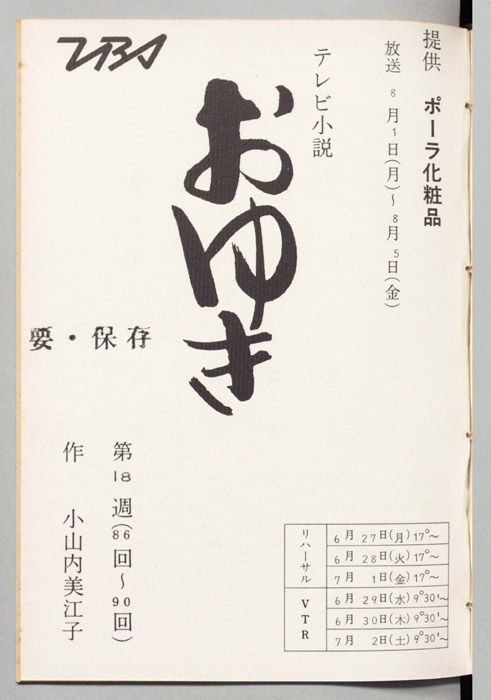 提供 ポーラ化粧品
放送 8月1日(月)~8月5日(金)
テレビ小説
おゆき
TBS
要・保存
第18週(86回~90回)
作 小山内美江子
リハーサル
6月27日(月)17°~
6月28日(火)17°~
7月1日(金)17°~
VTR
6月29日(水)9°30'~
6月30日(木)9°30'~
7月2日(土)9°30'~